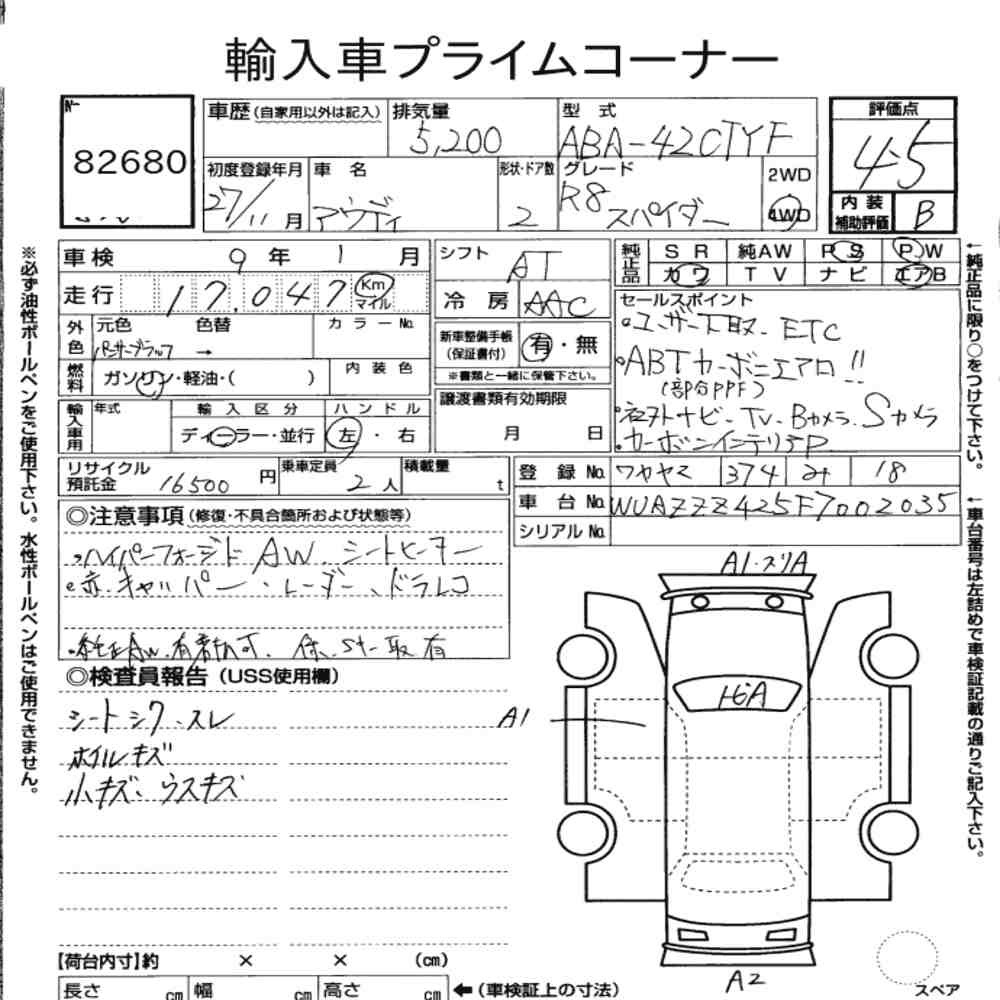 輸入車プライムコーナー
82680
車歴(自家用以外は記入)
排気量
5,200
型式
ABA-42CTYF
評価点
4.5
初度登録年月
27/11月
車名
アウディ
形状・ドア数
2
グレード
R8 スパイダー
2WD
4WD
内装補助評価
B
車検 9年1月
走行 17.047 Km マイル
シフト AT
冷房 AAC
純正品
SR 純AW PS PW
カワ TV ナビ エアB
外色 元色 色替 カラーNo.
→
燃料 ガソリン・軽油・( )
内装色
新車整備手帳(保証書付) 有・無
※書類と一緒に保管下さい。
セールスポイント
・ユーザー下取. ETC
・ABTカーボンエアロ!!
(部分PPF)
ナビ. TV. Bカメラ. Sカメラ
・カーボンインテリアP
輸入車用 年式 輸入区分 ハンドル
ディーラー・並行 左・右
譲渡書類有効期限
月 日
リサイクル預託金 16500円
乗車定員 2人
積載量 t
登録No. ワカヤマ 374 み 18
車台No. WUAZZZ425F7002035
シリアルNo.
◎注意事項(修復・不具合箇所および状態等)
・ハイパーフォージド AW. シートヒーター
・赤キャリパー・レーダー、ドラレコ
◎検査員報告(USS使用欄)
シートシワ.スレ
ホイルキズ
小キズ、ウスキズ
A1・スリA
トビA
A1
A2
【荷台内寸】約 × × (cm)
長さ cm 幅 cm 高さ cm ←(車検証上の寸法)
スペア
※必ず油性ボールペンをご使用下さい。水性ボールペンはご使用できません。
←純正品に限り○をつけて下さい。
←車台番号は左詰めで車検証記載の通りご記入下さい。